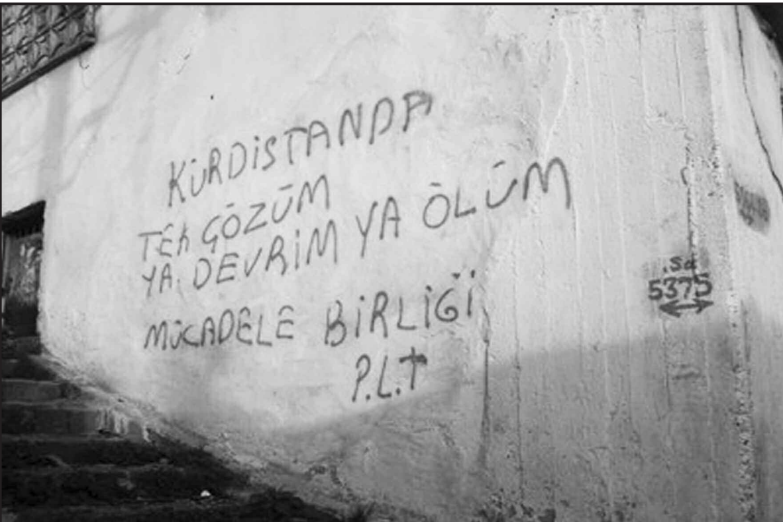 KÜRDİSTANDA
TEK ÇÖZÜM
YA DEVRİM YA ÖLÜM
MÜCADELE BİRLİĞİ
P.L.T
.Sd
5375